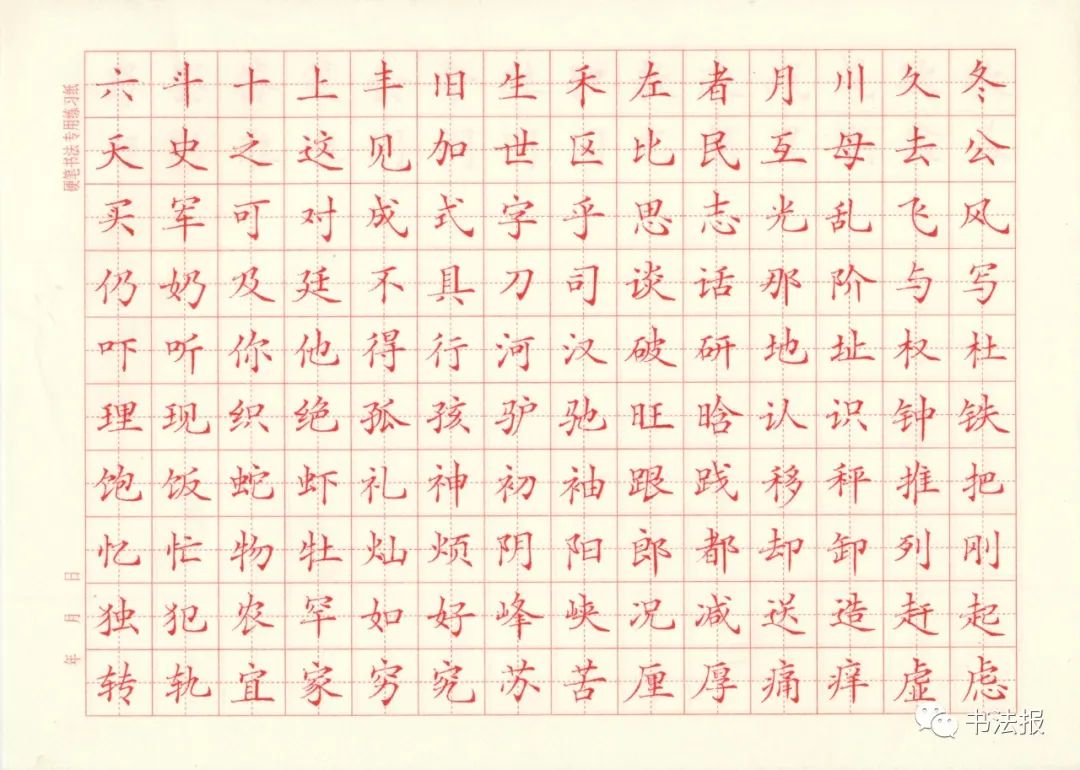 六斗十上丰旧生禾左者月川久冬
天史之这见加世区比民互母去公
买军可对成式字乎思志光乱飞风
仍奶及廷不具刀司谈话那阶与写
吓听你他得行河汉破研地址权杜
理现织绝孤孩驴驰旺晗认识钟铁
饱饭蛇虾礼神初袖跟践移秤推把
忆忙物牡灿烦阴阳郎都却卸列刚
独犯农罕如好峰峡况减送造赶起
转轨宜家穷究苏苦厘厚痛痒虚虑
硬笔书法专用练习纸
年 月 日
书法报